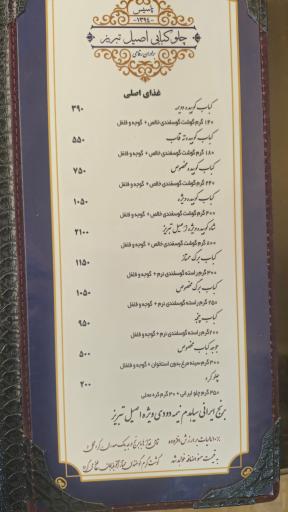 تاسیس
-۱۳۹۴-
چلوکبابی اصیل تبریز
برادران رزاقی
غذای اصلی
کباب کوبیده دو سیخ ۳۹۰
۱۴۰ گرم گوشت گوسفندی خالص + گوجه و فلفل
کباب کوبیده ته قاب ۵۵۰
۱۸۰ گرم گوشت گوسفندی خالص + گوجه و فلفل
کباب کوبیده مخصوص ۷۵۰
۲۴۰ گرم گوشت گوسفندی خالص + گوجه و فلفل
کباب کوبیده ویژه ۱۰۵۰
۴۰۰ گرم گوشت گوسفندی خالص + گوجه و فلفل
شاه کوبیده ویژه اصیل تبریز ۲۱۰۰
۸۰۰ گرم گوشت گوسفندی خالص + گوجه و فلفل
کباب برگ ممتاز ۱۱۵۰
۳۰۰ گرم راسته گوسفندی نرم + گوجه و فلفل
کباب برگ مخصوص ۱۰۵۰
۲۵۰ گرم راسته گوسفندی نرم + گوجه و فلفل
کباب چنجه ۹۵۰
۲۰۰ گرم راسته گوسفندی نرم + گوجه و فلفل
جوجه کباب مخصوص ۵۰۰
۳۰۰ گرم سینه مرغ بدون استخوان + گوجه و فلفل
چلو کره ۲۰۰
۳۵۰ گرم چلو ایرانی + ۳۰ گرم کره محلی
برنج ایرانی سیاهدم نیمه دودی ویژه اصیل تبریز
۱۰٪ مالیات بر ارزش افزوده
به قیمت منو اضافه خواهد شد